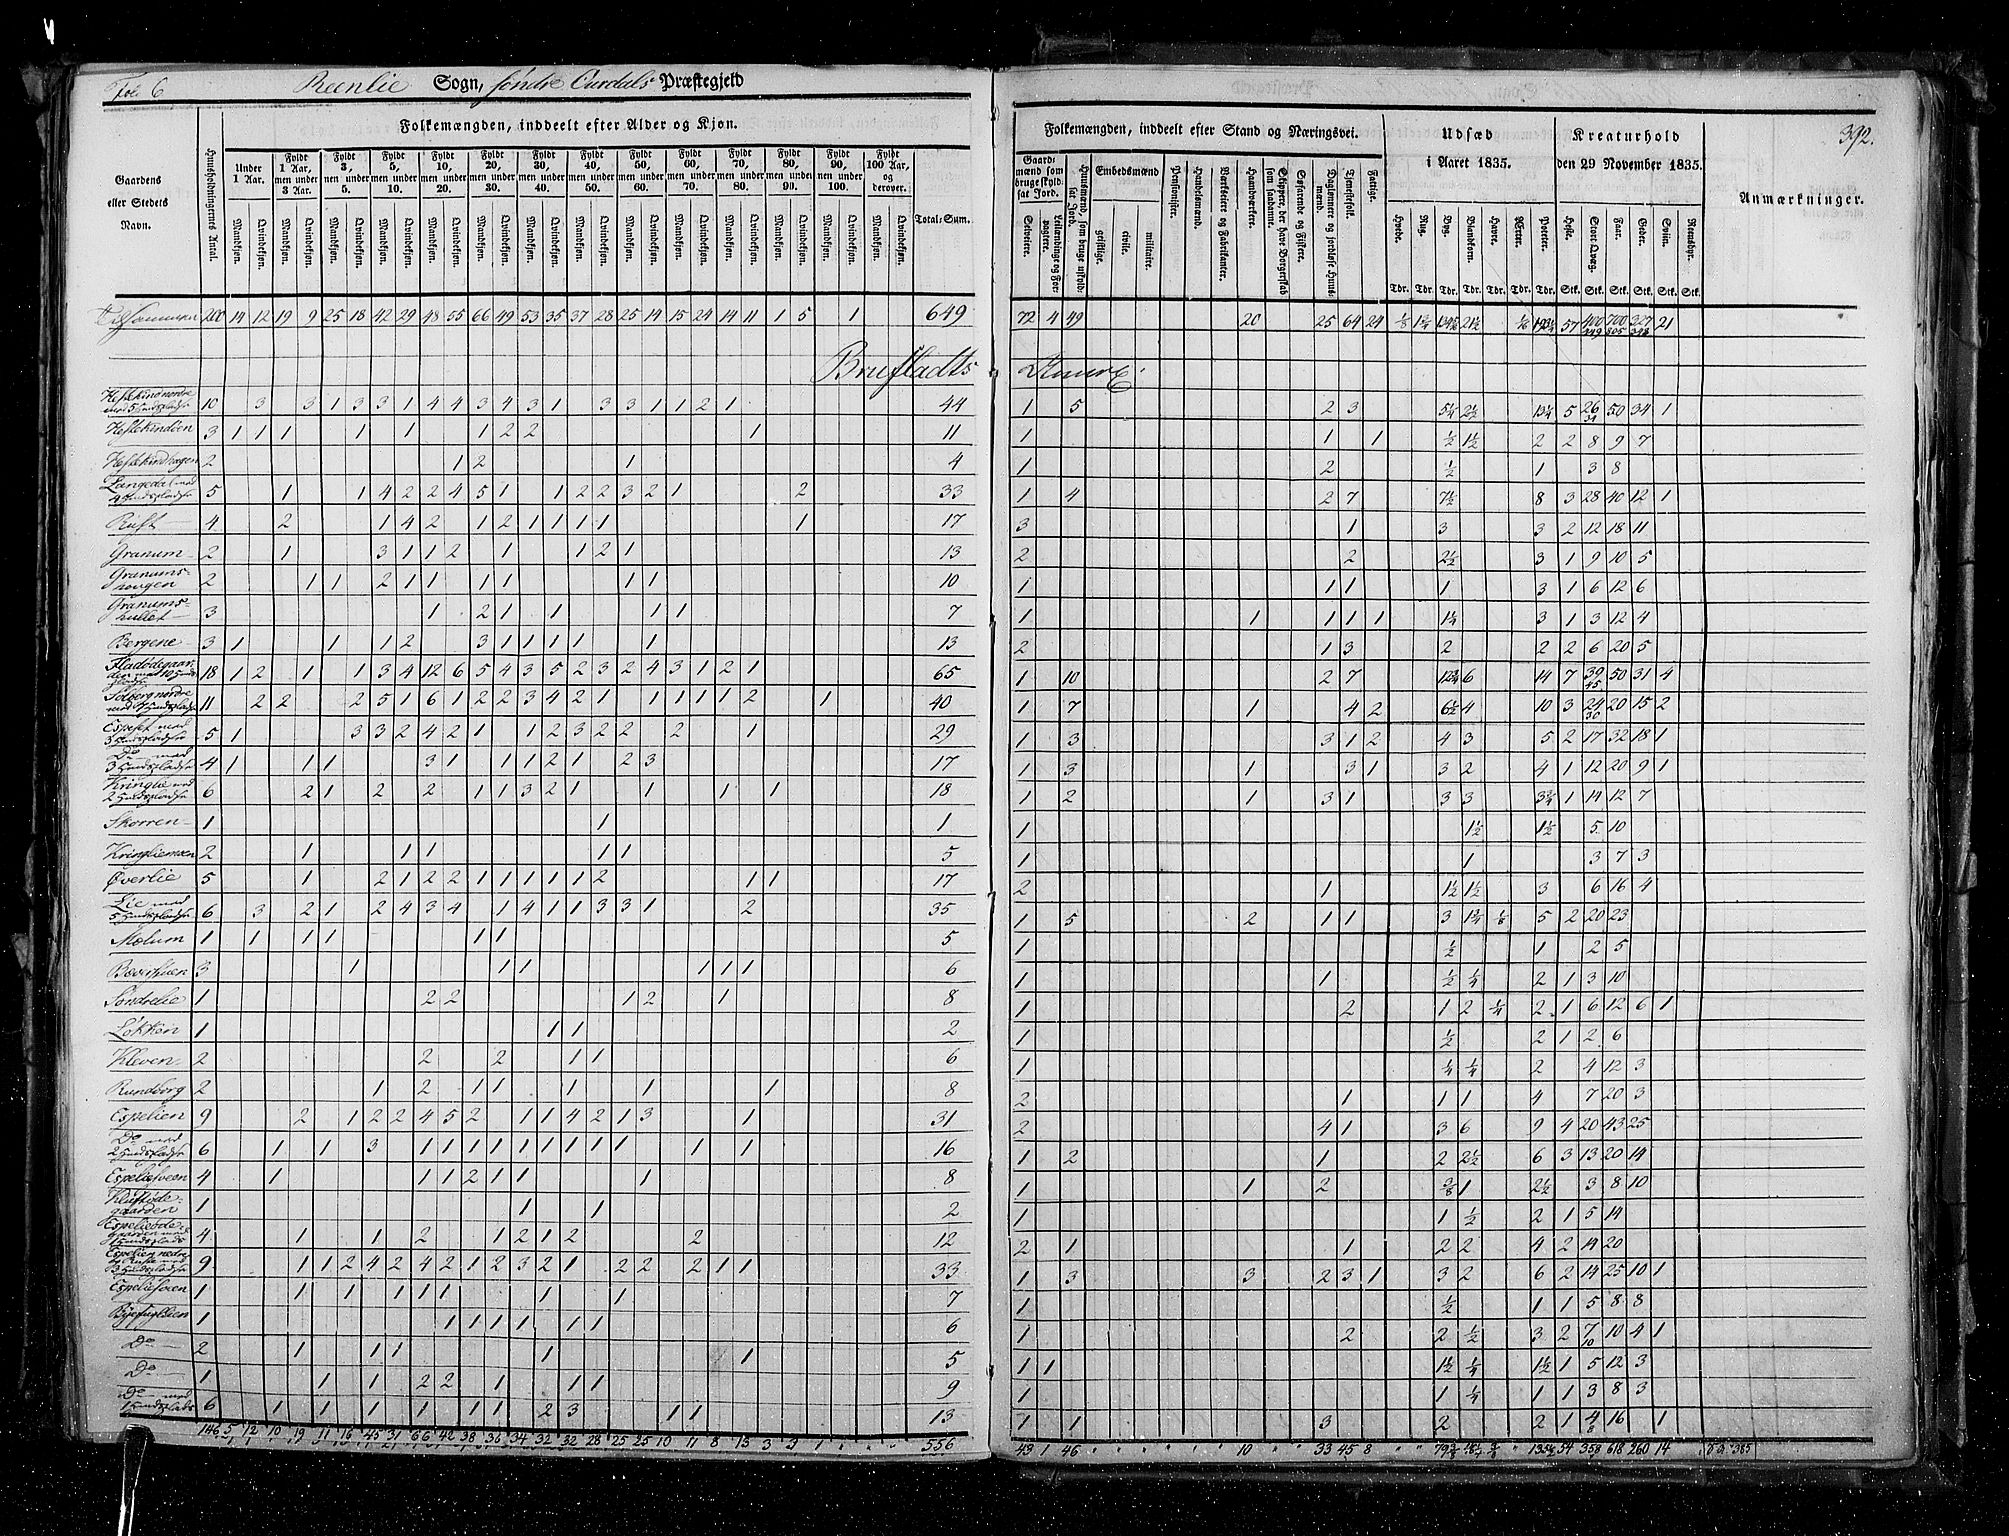 Fol. 6 Reenlie Sogn, Søndre Ourdals Præstegjeld
392.
Gaardens eller Stedets Navn.
Huusholdningernes Antal.
Folkemængden, inddeelt efter Alder og Kjøn.
Under 1 Aar.
Fyldt 1 Aar, men under 3 Aar.
Fyldt 3, men under 5.
Fyldt 5, men under 10.
Fyldt 10, men under 20.
Fyldt 20, men under 30.
Fyldt 30, men under 40.
Fyldt 40, men under 50.
Fyldt 50, men under 60.
Fyldt 60, men under 70.
Fyldt 70, men under 80.
Fyldt 80, men under 90.
Fyldt 90, men under 100.
Fyldt 100 Aar, og derover.
Mandkjøn. Qvindekjøn.
Total-Sum.
Folkemængden, inddeelt efter Stand og Næringsvei.
Gaardmænd som bruge skyldsat Jord.
Selveiere.
Leilændinge og Forpagtere.
Huusmænd, som bruge uskyldsat Jord.
Embedsmænd
geistlige.
civile.
militaire.
Pensionister.
Handelsmænd.
Værkseiere og Fabrikanter.
Haandværkere.
Skippere, der have Borgerskab som saadanne.
Søfarende og Fiskere.
Daglønnere og jordløse Huusmænd.
Tjenestefolk.
Fattige.
Udsæd i Aaret 1835.
Hvede. Rug. Byg. Blandkorn. Havre. Ærter. Poteter.
Tdr. Tdr. Tdr. Tdr. Tdr. Tdr. Tdr.
Kreaturhold den 29 November 1835.
Heste. Stort Qvæg. Faar. Geder. Sviin. Reensdyr.
Stk. Stk. Stk. Stk. Stk. Stk.
Anmærkninger.
Tilsammen 200 14 12 19 9 25 18 42 29 48 55 66 49 53 35 37 28 25 14 15 24 14 11 1 5 1 649
Brufladts
Heslekind nordre med 5 Huusspladse 10 3 3 1 3 3 1 4 4 3 4 3 1 3 3 1 1 2 1 44 1 5 2 3 5¼ 2½ 13¼ 5 26 50 34 1
Heslekindøen 3 1 1 1 1 1 1 2 2 1 11 1 1 1 ½ 1½ 2 2 8 9 7
Heslekindhagen 2 1 2 1 4 1 2 ½ 1 3 8
Langedal med 4 Huusspladse 5 1 1 4 2 2 4 5 1 1 2 2 3 2 1 2 33 1 4 2 7 7½ 8 3 28 40 12 1
Rust 4 2 1 4 2 1 2 1 1 1 1 1 17 3 1 3 3 2 12 18 11
Granum 2 1 3 1 1 2 1 1 2 1 13 2 2 2½ 3 1 9 10 5
Granumshougen 2 1 1 2 1 1 1 1 1 1 10 1 1 1 1 3 1 6 12 6
3 1 2 1 1 1 1 7 1 1 1 1 1 1¼ 3 1 3 12 4
Bergene 3 1 1 1 2 3 1 1 1 1 1 13 2 1 3 2 2 2 6 20 5
18 1 2 1 1 3 4 12 6 5 4 3 5 2 3 2 4 3 1 2 1 65 1 10 2 7 6 14 7 39 50 31 4
Solberg nordre med 7 Huusspladse 11 2 2 2 5 1 6 1 2 2 3 4 2 1 1 1 1 1 2 1 40 1 7 1 4 2 6½ 4 10 3 24 20 15 2
Espeset med 3 Huusspladse 5 1 3 3 2 4 2 1 1 2 3 2 2 2 1 29 1 3 3 1 2 4 3 5 2 17 32 18 1
Do med 3 Huusspladse 4 1 1 1 3 1 1 1 2 1 2 3 17 1 3 1 3 1 3 2 4 1 12 20 9 1
Kringlie med 2 Huusspladse 6 2 1 2 2 1 1 3 2 1 1 1 1 18 1 2 1 3 1 3 3 3¼ 1 14 12 7
Skorren 1 1 1 1 1½ 1½ 5 10
Kringliemoen 2 1 1 1 1 1 5 1 1 3 7 3
Øverlie 5 1 2 1 2 2 1 1 1 1 1 2 1 1 17 2 1 1½ 1½ 3 6 16 4
Lie med 5 Huusspladse 6 3 2 1 2 4 3 4 1 4 1 1 3 3 1 2 35 1 5 2 1 1 3 1¾ ⅛ 5 2 20 23
Mælum 1 1 1 1 1 1 5 1 ½ 1 2 5
3 1 1 1 1 1 1 6 1 1 ½ ¼ 2 1 3 10
Søndrelie 1 2 2 1 2 1 8 1 2 1 2 ¼ 2 1 6 12 6 1
Løkken 1 1 1 2 1 ½ 2 1 2 6
Kleven 2 2 2 1 1 6 1 ¼ ¼ 2 4 12 3
Rundborg 2 1 2 1 1 1 1 1 8 2 1 1 1 4 7 20 3
Espelien 9 2 1 2 2 4 5 2 1 1 4 2 1 3 1 31 2 4 1 3 6 9 4 20 43 25
Do med 2 Huusspladse 6 1 1 3 1 1 1 1 1 1 1 1 1 1 1 16 1 2 1 2 2½ 6 3 13 20 14
Espelisveen 4 1 1 1 2 1 1 1 8 1 1 2 ⅜ 1 2½ 3 8 10
1 1 1 2 1 1 ½ 2 1 5 14
4 1 1 2 1 2 1 2 2 12 2 1 1 2 2 4 2 14 20
9 1 1 2 4 2 4 2 1 2 3 2 1 2 2 2 1 1 33 1 3 3 2 3 1 3 2 6 2 14 25 10 1
1 1 1 1 1 1 1 1 7 1 ½ 1 1 5 8 8
1 1 1 1 1 1 1 6 1 2 2 ½ 3 2 7 10 4 1
Do 2 1 1 1 1 1 5 1 1 1½ ¼ 1½ 1 5 12 3
Do 1 1 1 2 2 1 1 1 9 1 1 ¼ 1 1 3 8 3
Do med 1 Huusplads 6 1 1 1 1 1 1 2 3 1 1 13 1 1 3 2 2 1 4 16 1
146 5 12 10 19 11 16 45 31 66 42 38 36 34 32 32 28 25 25 10 11 8 13 3 3 1 556 43 1 46 10 33 45 8 54 358 618 260 14